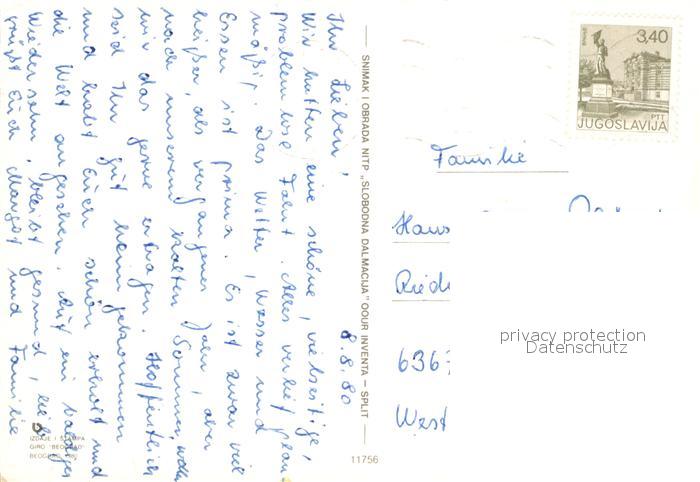 Ihr Lieben!
8.8.80
Wir hatten eine schöne, vielseitige,
problemlose Fahrt. Alles verlief plan-
mäßig. Das Wetter, Wasser und
Essen ist prima. Es ist zwar viel
heißer, als vergangenes Jahr, aber
nach unserem kalten Sommer, wollen
wir das gerne ertragen. Hoffentlich
seid Ihr gut heim gekommen
und habt Euch schön erholt und
die Welt angesehen. Auf ein baldiges
Wiedersehn, bleibt gesund,
grüßt Euch Margot und Familie
SNIMAK I OBRADA NITP „SLOBODNA DALMACIJA" OOUR INVENTA — SPLIT
IZDAJE I ŠTAMPA
GIRO "BEOGRAD"
BEOGRAD 1980
11756
3,40
PTT
JUGOSLAVIJA
Familie
Hans
Ried
636
West
privacy protection
Datenschutz